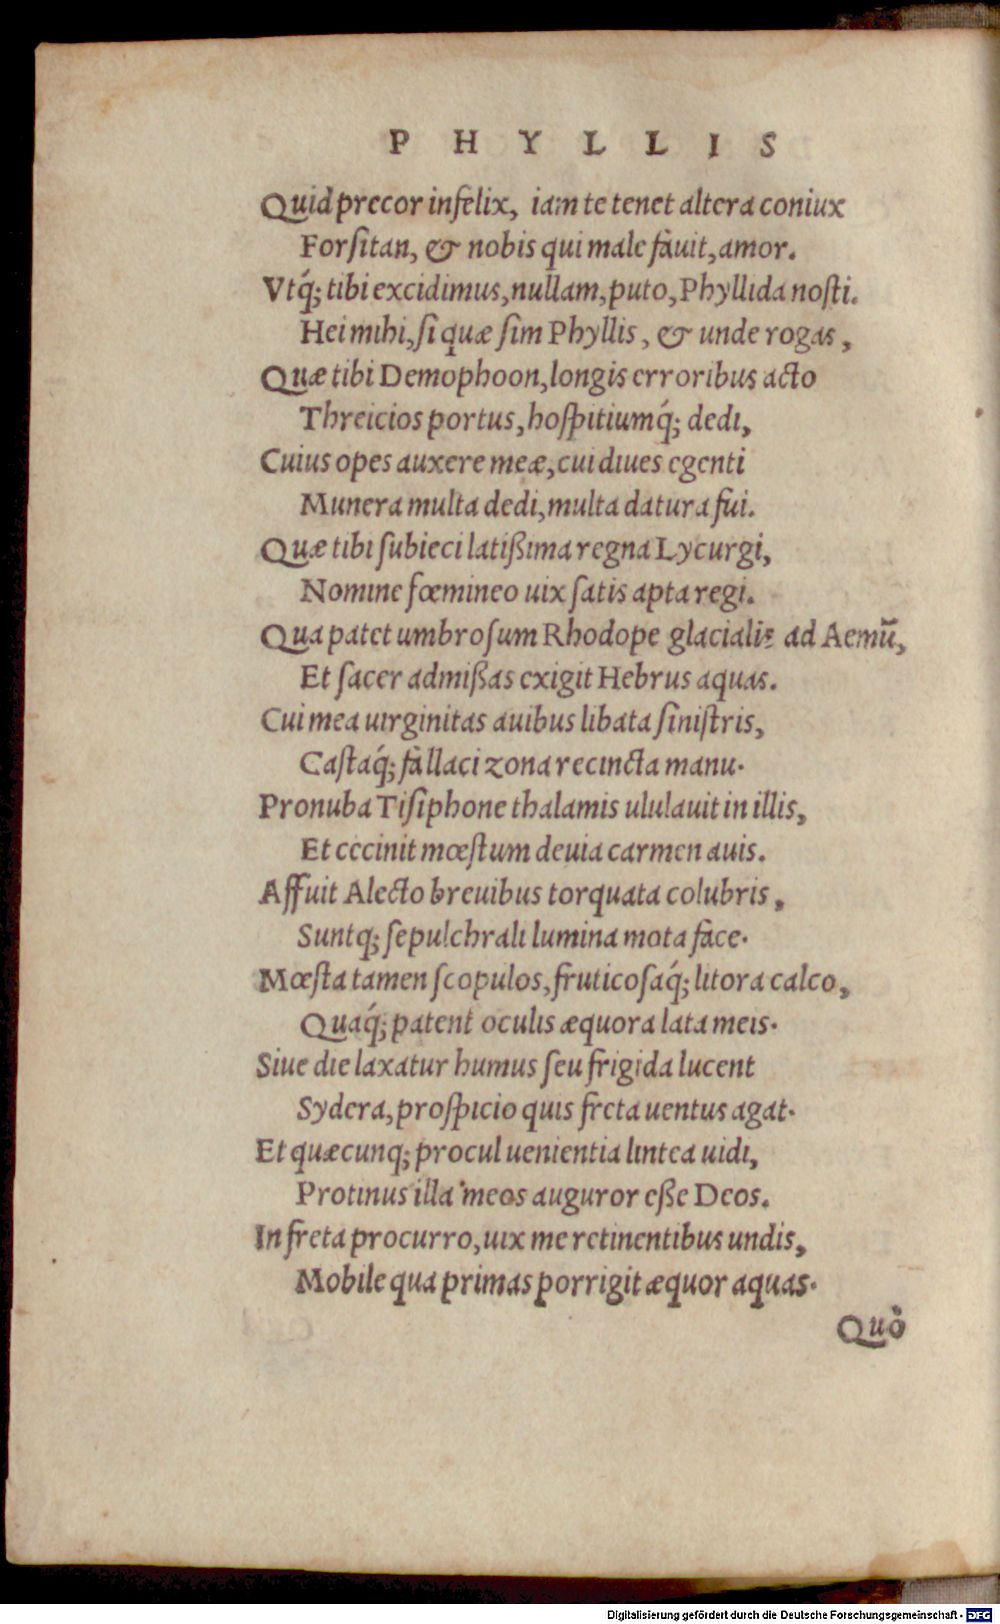 PHYLLIS
Quid precor infelix, iam te tenet altera coniux
Forsitan, & nobis qui male fauit, amor.
Vtq́; tibi excidimus, nullam, puto, Phyllida nosti.
Hei mihi, si quæ sim Phyllis, & unde rogas,
Quæ tibi Demophoon, longis erroribus acto
Threicios portus, hospitiumq́; dedi,
Cuius opes auxere meæ, cui diues egenti
Munera multa dedi, multa datura fui.
Quæ tibi subieci latißima regna Lycurgi,
Nomine fœmineo uix satis apta regi.
Qua patet umbrosum Rhodope glacialis ad Aemū,
Et sacer admißas exigit Hebrus aquas.
Cui mea uirginitas auibus libata sinistris,
Castaq́; fallaci zona recincta manu.
Pronuba Tisiphone thalamis ululauit in illis,
Et cecinit mœstum deuia carmen auis.
Affuit Alecto breuibus torquata colubris,
Suntq; sepulchrali lumina mota face.
Mœsta tamen scopulos, fruticosaq́; litora calco,
Quaq́; patent oculis æquora lata meis.
Siue die laxatur humus seu frigida lucent
Sydera, prospicio quis freta uentus agat.
Et quæcunq; procul uenientia lintea uidi,
Protinus illa meos auguror eße Deos.
In freta procurro, uix me retinentibus undis,
Mobile qua primas porrigit æquor aquas.
Quò
Digitalisierung gefördert durch die Deutsche Forschungsgemeinschaft - DFG